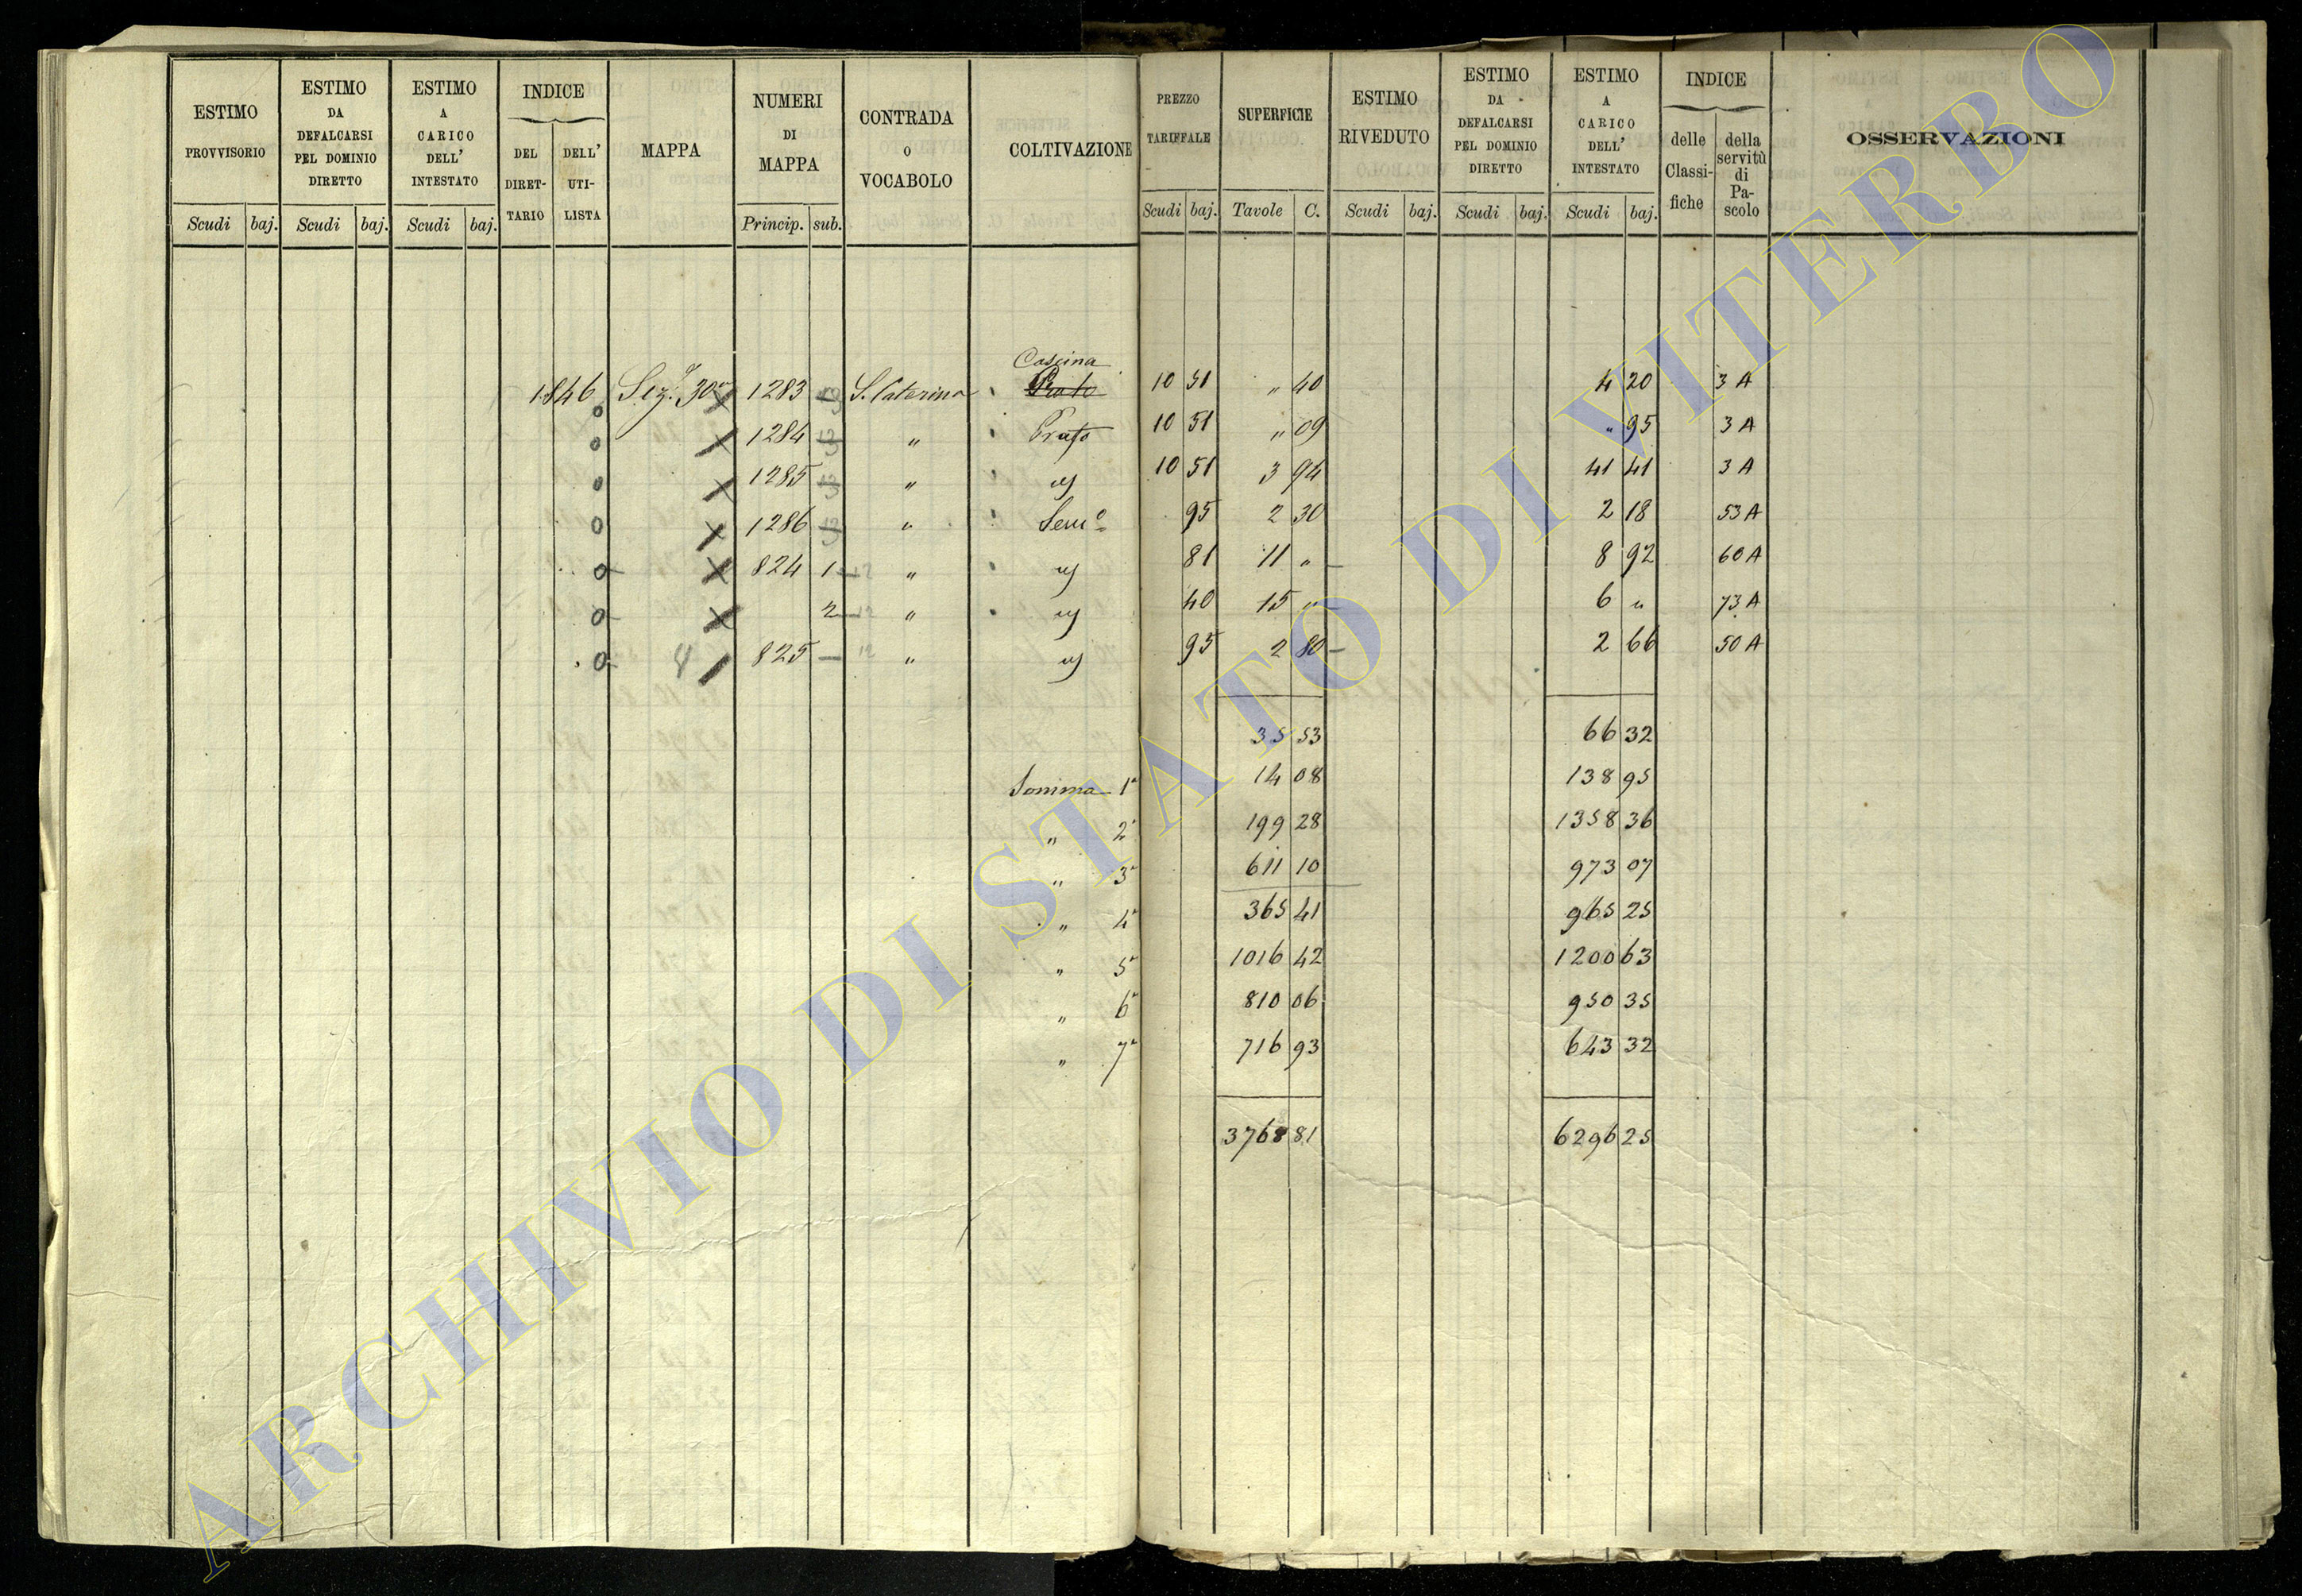 ESTIMO PROVVISORIO
ESTIMO DA DEFALCARSI PEL DOMINIO DIRETTO
ESTIMO A CARICO DELL' INTESTATO
INDICE
DEL DIRETTARIO
DELL' UTILISTA
MAPPA
NUMERI DI MAPPA
CONTRADA O VOCABOLO
COLTIVAZIONE
PREZZO TARIFFALE
SUPERFICIE
ESTIMO RIVEDUTO
ESTIMO DA DEFALCARSI PEL DOMINIO DIRETTO
ESTIMO A CARICO DELL' INTESTATO
INDICE
delle Classifiche
della servitù di Pascolo
OSSERVAZIONI
Scudi baj. Scudi baj. Scudi baj. Princip. sub. Scudi baj. Tavole C. Scudi baj. Scudi baj. Scudi baj.
Cascina
1846 Sez.e 30a 1283 S. Caterina Prato 10 51 " 40 4 20 3 A
1284 " Prato 10 51 " 09 " 95 3 A
1285 " id 10 51 3 94 41 41 3 A
1286 " Sem.o 95 2 30 2 18 53 A
824 1 " id 81 11 " 8 92 60 A
2 " id 40 15 " 6 " 73 A
825 " id 95 2 80 2 66 50 A
35 53 66 32
Somma 1a 14 08 138 95
" 2a 199 28 1358 36
" 3a 611 10 973 07
" 4a 365 41 965 25
" 5a 1016 42 1200 63
" 6a 810 06 950 35
" 7a 716 93 643 32
3768 81 6296 25
ARCHIVIO DI STATO DI VITERBO